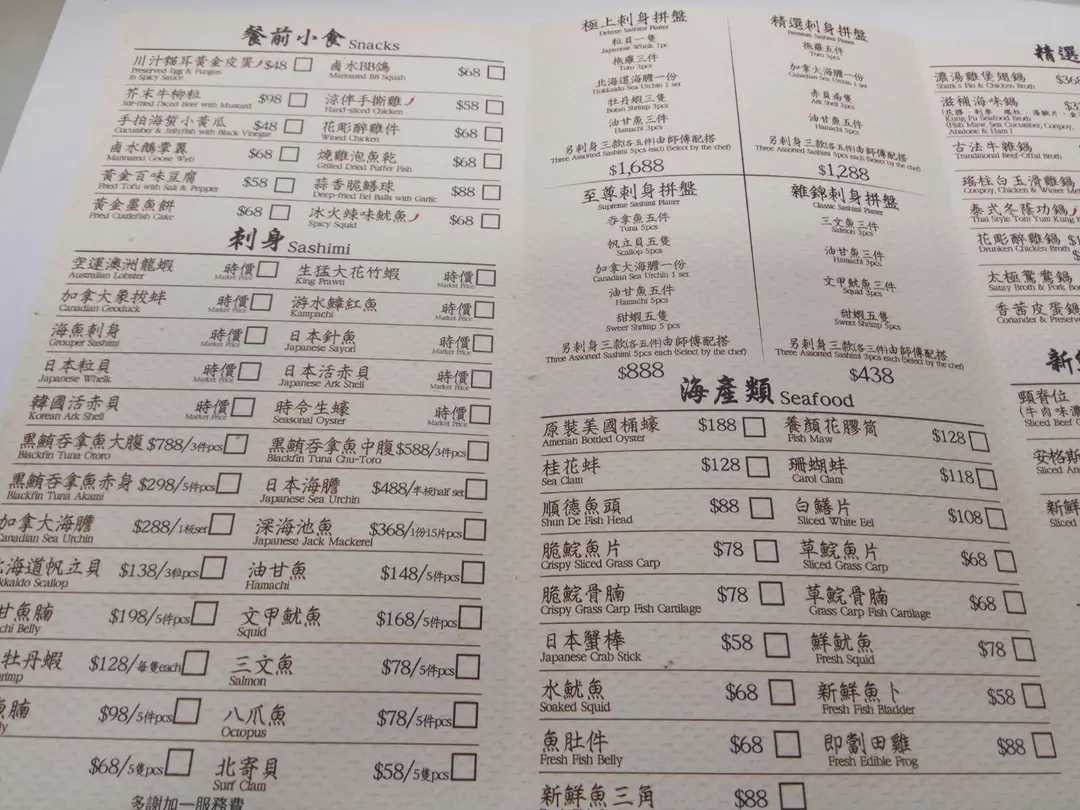 餐前小食 Snacks
川汁貓耳黃金皮蛋 $48
Preserved Egg & Fungus
in Spicy Sauce
鹵水BB鴿 $68
Marinated BB Squab
芥末牛柳粒 $98
Stir-fried Diced Beef with Mustard
涼伴手撕雞 $58
Hand-sliced Chicken
手拍海蜇小黃瓜 $48
Cucumber & Jellyfish with Black Vinegar
花彫醉雞件 $68
Wined Chicken
鹵水鵝掌翼 $68
Marinated Goose Web
燒雞泡魚乾 $68
Grilled Dried Puffer Fish
黃金百味豆腐 $58
Fried Tofu with Salt & Pepper
蒜香脆鱔球 $88
Deep-fried Eel Balls with Garlic
黃金墨魚餅 $68
Fried Cuttlefish Cake
冰火辣味魷魚 $68
Spicy Squid
刺身 Sashimi
空運澳洲龍蝦 時價
Australian Lobster Market Price
生猛大花竹蝦 時價
King Prawn Market Price
加拿大象拔蚌 時價
Canadian Geoduck Market Price
游水鱆紅魚 時價
Kampachi Market Price
海魚刺身 時價
Grouper Sashimi Market Price
日本針魚 時價
Japanese Sayori Market Price
日本粒貝 時價
Japanese Whelk Market Price
日本活赤貝 時價
Japanese Ark Shell Market Price
韓國活赤貝 時價
Korean Ark Shell Market Price
時令生蠔 時價
Seasonal Oyster Market Price
黑鮪吞拿魚大腹 $788/3件pcs
Blackfin Tuna Otoro
黑鮪吞拿魚中腹 $588/3件pcs
Blackfin Tuna Chu-Toro
黑鮪吞拿魚赤身 $298/5件pcs
Blackfin Tuna Akami
日本海膽 $488/半板half set
Japanese Sea Urchin
加拿大海膽 $288/1板set
Canadian Sea Urchin
深海池魚 $368/1份15片pcs
Japanese Jack Mackerel
北海道帆立貝 $138/3粒pcs
kkaido Scallop
油甘魚 $148/5件pcs
Hamachi
甘魚腩 $198/5件pcs
chi Belly
文甲魷魚 $168/5件pcs
Squid
牡丹蝦 $128/每隻each
rimp
三文魚 $78/5件pcs
Salmon
魚腩 $98/5件pcs
ly
八爪魚 $78/5件pcs
Octopus
$68/5隻pcs
北寄貝 $58/5隻pcs
Surf Clam
多謝加一服務費
極上刺身拼盤
Deluxe Sashimi Platter
粒貝一隻
Japanese Whelk 1pc
拖羅三件
Toro 3pcs
北海道海膽一份
Hokkaido Sea Urchin 1 set
牡丹蝦三隻
Botan Shrimp 3pcs
油甘魚三件
Hamachi 3pcs
另刺身三款(各五件)由師傅配搭
Three Assorted Sashimi 5pcs each (Select by the chef)
$1,688
精選刺身拼盤
Premium Sashimi Platter
拖羅五件
Toro 5pcs
加拿大海膽一份
Canadian Sea Urchin 1 set
赤貝兩隻
Ark Shell 2pcs
油甘魚五件
Hamachi 5pcs
另刺身三款(各五件)由師傅配搭
Three Assorted Sashimi 5pcs each (Select by the chef)
$1,288
至尊刺身拼盤
Supreme Sashimi Platter
吞拿魚五件
Tuna 5pcs
帆立貝五隻
Scallop 5pcs
加拿大海膽一份
Canadian Sea Urchin 1 set
油甘魚五件
Hamachi 5pcs
甜蝦五隻
Sweet Shrimp 5 pcs
另刺身三款(各五件)由師傅配搭
Three Assorted Sashimi 5pcs each (Select by the chef)
$888
雜錦刺身拼盤
Classic Sashimi Platter
三文魚三件
Salmon 3pcs
油甘魚三件
Hamachi 3pcs
文甲魷魚三件
Squid 3pcs
甜蝦五隻
Sweet Shrimp 5pcs
另刺身三款(各三件)由師傅配搭
Three Assorted Sashimi 3pcs each (Select by the chef)
$438
海產類 Seafood
原裝美國桶蠔 $188
Amerian Bottled Oyster
養顏花膠筒 $128
Fish Maw
桂花蚌 $128
Sea Clam
珊瑚蚌 $118
Carol Clam
順德魚頭 $88
Shun De Fish Head
白鱔片 $108
Sliced White Eel
脆鯇魚片 $78
Crispy Sliced Grass Carp
草鯇魚片 $68
Sliced Grass Carp
脆鯇骨腩 $78
Crispy Grass Carp Fish Cartilage
草鯇骨腩 $68
Grass Carp Fish Cartilage
日本蟹棒 $58
Japanese Crab Stick
鮮魷魚 $78
Fresh Squid
水魷魚 $68
Soaked Squid
新鮮魚卜 $58
Fresh Fish Bladder
魚肚件 $68
Fresh Fish Belly
即劏田雞 $88
Fresh Edible Prog
新鮮魚三角 $88
精選
濃湯雞煲翅鍋 $36
Shark's Fin & Chicken Broth
滋補海味鍋
Kung Fu Seafood Broth
(Fish Maw, Sea Cucumber, Conpoy,
Abalone & Ham)
古法牛雜鍋
Tranditional Beef-Offal Broth
瑤柱白玉滑雞鍋
Conpoy, Chicken & Winter Me
泰式冬蔭功鍋
Thai Style Tom Yum Kung
花彫醉雞鍋
Drunken Chicken Broth
太極鴛鴦鍋
Satay Broth & Pork Bo
香茜皮蛋鍋
Coriander & Preserve
新
頸脊位
(牛肉味濃
Sliced Beef
安格斯
Sliced An
新鮮
Sliced